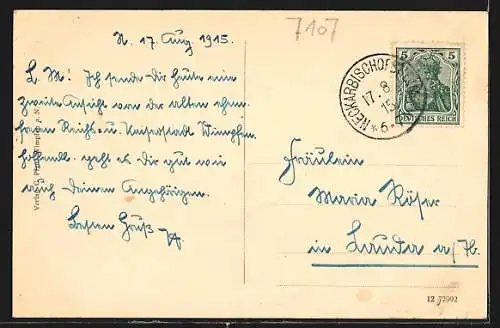 N. 17. Aug. 1915.
7107
L. M! Ich sende Dir heute eine
zweite Ansicht von der alten ehem
Reichs u. Kaiserstadt Wimpfen
hoffentl. geht es Dir gut wie
auch Deinen Angehörigen.
Besten Gruß
Verlag G. Wimpfen a. N.
NECKARBISCHOFSH
17. 8. 15
* 6-
5 5
DEUTSCHES REICH
Fräulein
Maria Röser
in Lauda a/Tb.
12 72992